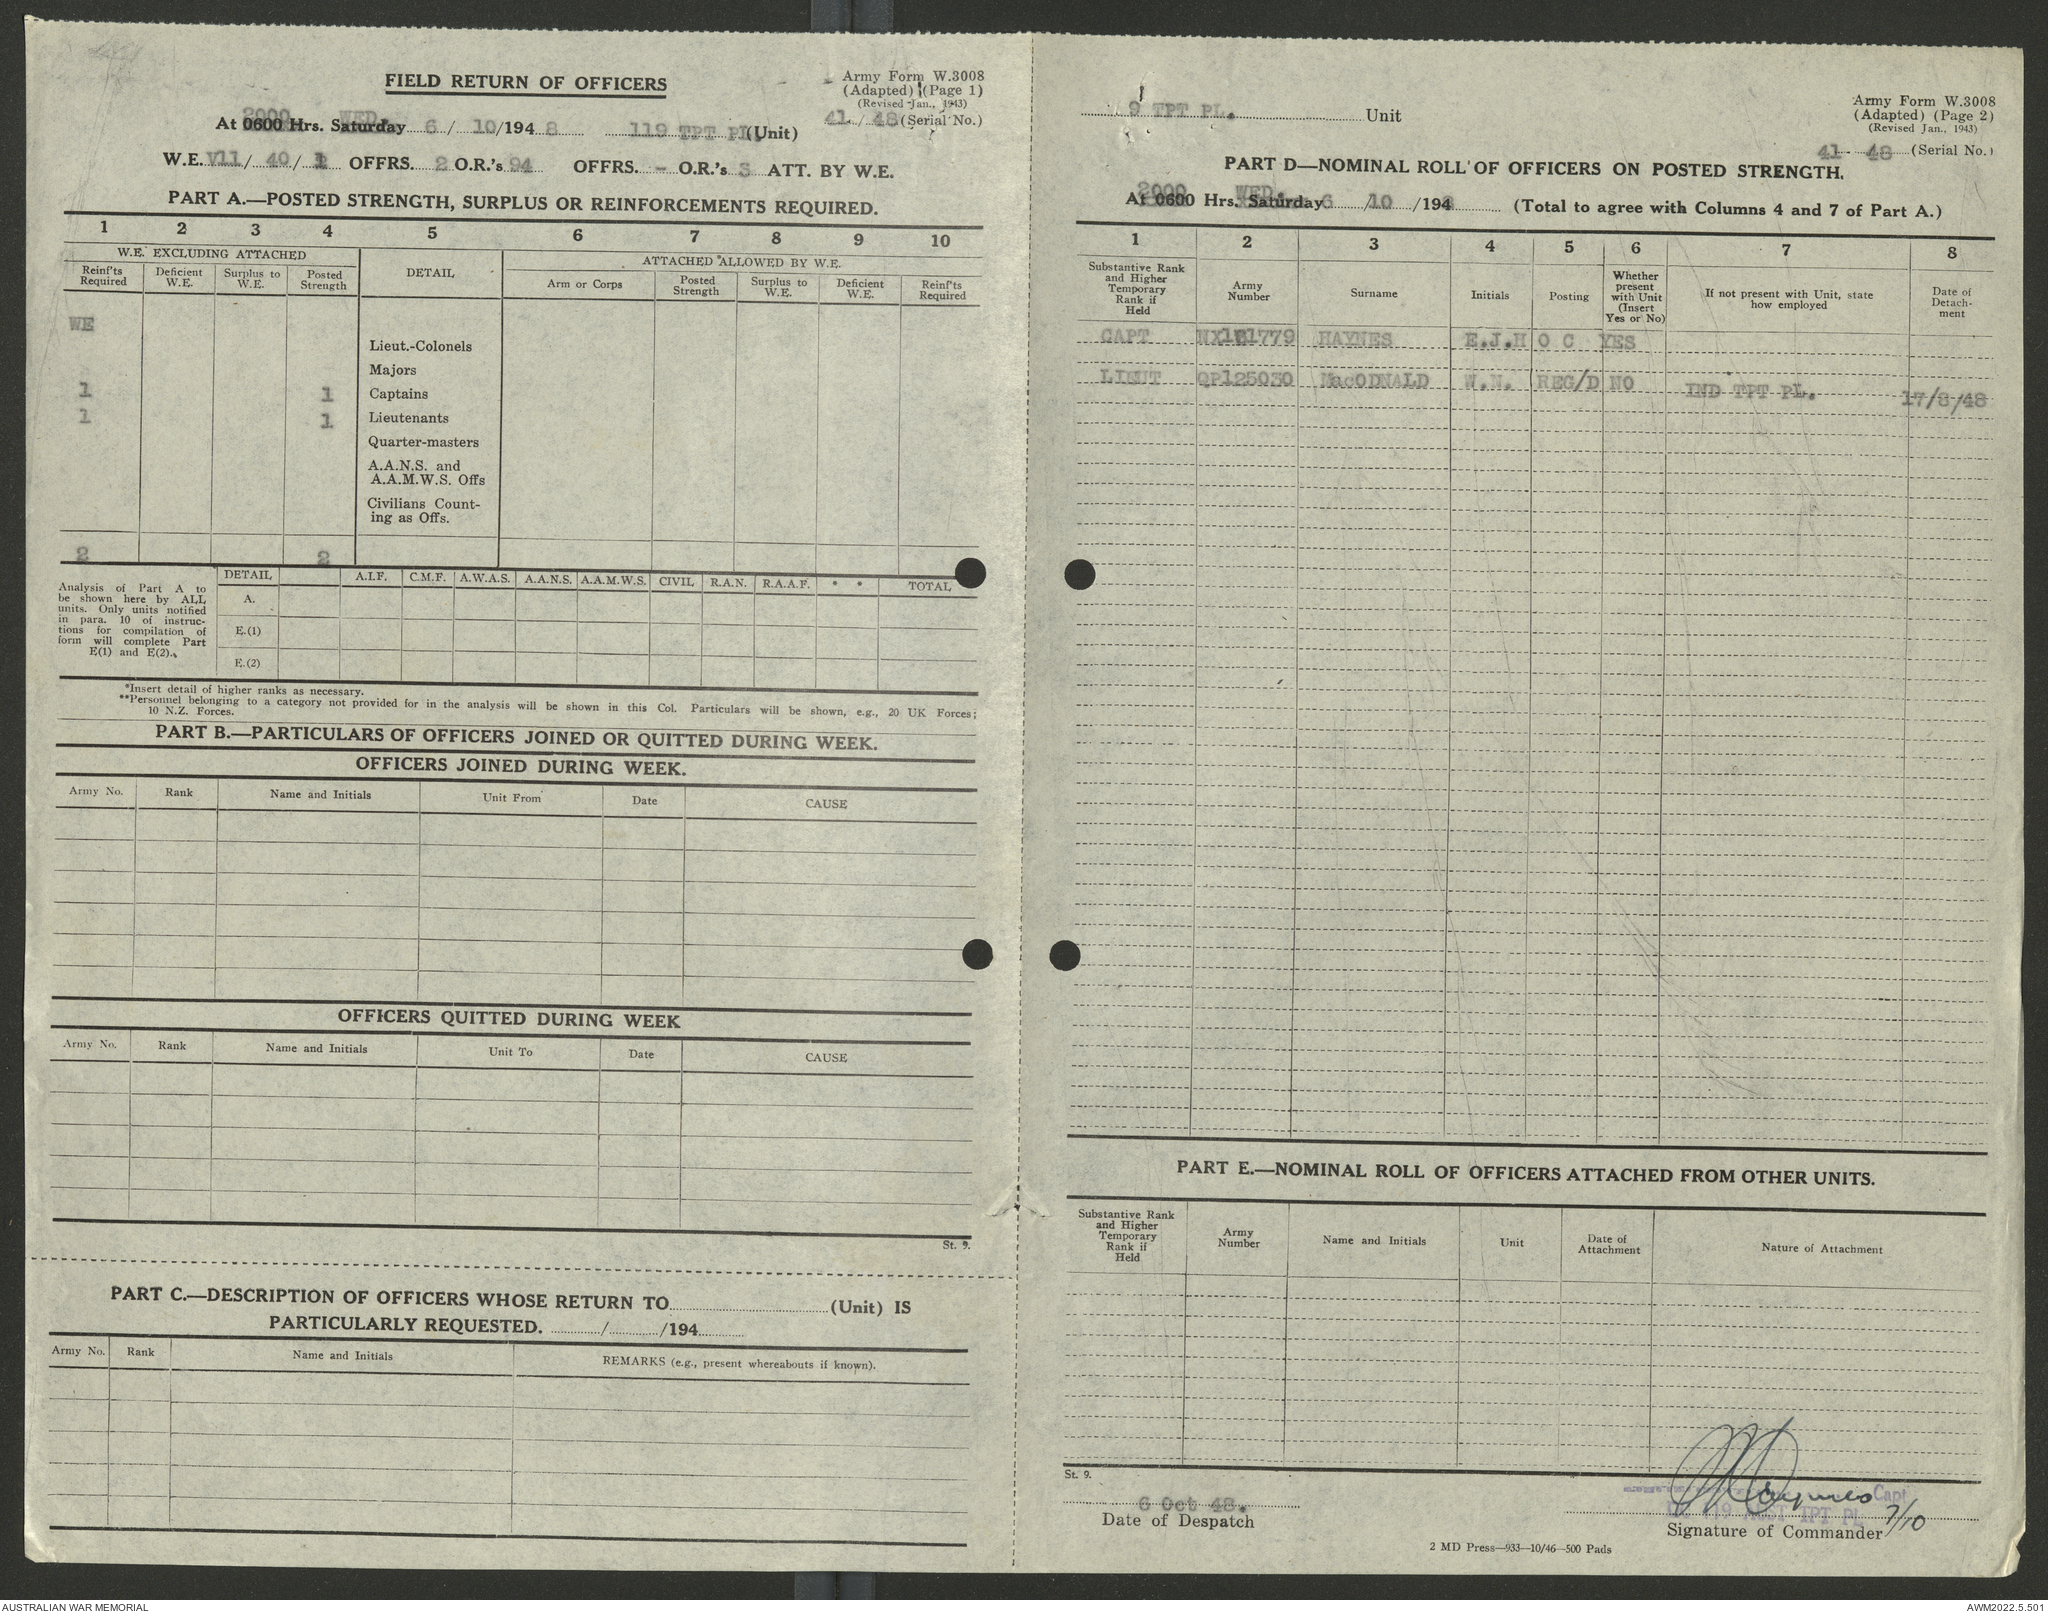 FIELD RETURN OF OFFICERS
Army Form W.3008
(Adapted) (Page 1)
(Revised Jan., 1943)
2000 WED.
At 0600 Hrs. Saturday 6 / 10/194 8 119 TPT PL (Unit) 41 / 48 (Serial No.)
W.E. V11/ 40 / OFFRS. 2 O.R.'s 94 OFFRS. - O.R.'s 3 ATT. BY W.E.
PART A.—POSTED STRENGTH, SURPLUS OR REINFORCEMENTS REQUIRED.
1 2 3 4 5 6 7 8 9 10
W.E. EXCLUDING ATTACHED
DETAIL
ATTACHED ALLOWED BY W.E.
Reinf'ts Required
Deficient W.E.
Surplus to W.E.
Posted Strength
Arm or Corps
Posted Strength
Surplus to W.E.
Deficient W.E.
Reinf'ts Required
WE
Lieut.-Colonels
Majors
1 1 Captains
1 1 Lieutenants
Quarter-masters
A.A.N.S. and
A.A.M.W.S. Offs
Civilians Count-
ing as Offs.
2 2
Analysis of Part A to
be shown here by ALL
units. Only units notified
in para. 10 of instruc-
tions for compilation of
form will complete Part
E(1) and E(2).
DETAIL A.I.F. C.M.F. A.W.A.S. A.A.N.S. A.A.M.W.S. CIVIL R.A.N. R.A.A.F. * * TOTAL
A.
E.(1)
E.(2)
*Insert detail of higher ranks as necessary.
**Personnel belonging to a category not provided for in the analysis will be shown in this Col. Particulars will be shown, e.g., 20 UK Forces;
10 N.Z. Forces.
PART B.—PARTICULARS OF OFFICERS JOINED OR QUITTED DURING WEEK.
OFFICERS JOINED DURING WEEK.
Army No. Rank Name and Initials Unit From Date CAUSE
OFFICERS QUITTED DURING WEEK
Army No. Rank Name and Initials Unit To Date CAUSE
St. 9.
PART C.—DESCRIPTION OF OFFICERS WHOSE RETURN TO (Unit) IS
PARTICULARLY REQUESTED. / /194
Army No. Rank Name and Initials REMARKS (e.g., present whereabouts if known).
9 TPT PL. Unit
Army Form W.3008
(Adapted) (Page 2)
(Revised Jan., 1943)
41- 48 (Serial No.)
PART D—NOMINAL ROLL OF OFFICERS ON POSTED STRENGTH.
2000 WED.
At 0600 Hrs. Saturday 6 /10 /194 8 (Total to agree with Columns 4 and 7 of Part A.)
1 2 3 4 5 6 7 8
Substantive Rank and Higher Temporary Rank if Held
Army Number
Surname
Initials
Posting
Whether present with Unit (Insert Yes or No)
If not present with Unit, state how employed
Date of Detach-ment
CAPT HAYNES E.J.H O C YES
LIEUT QP125030 MacODNALD W.N. REG/D NO IND TPT PL. 17/8/48
PART E.—NOMINAL ROLL OF OFFICERS ATTACHED FROM OTHER UNITS.
Substantive Rank and Higher Temporary Rank if Held
Army Number
Name and Initials
Unit
Date of Attachment
Nature of Attachment
St. 9.
6 Oct 48.
Date of Despatch
Haynes Capt
119 AUST TPT PL
Signature of Commander 7/10
2 MD Press—933—10/46—500 Pads
AUSTRALIAN WAR MEMORIAL
AWM2022.5.501